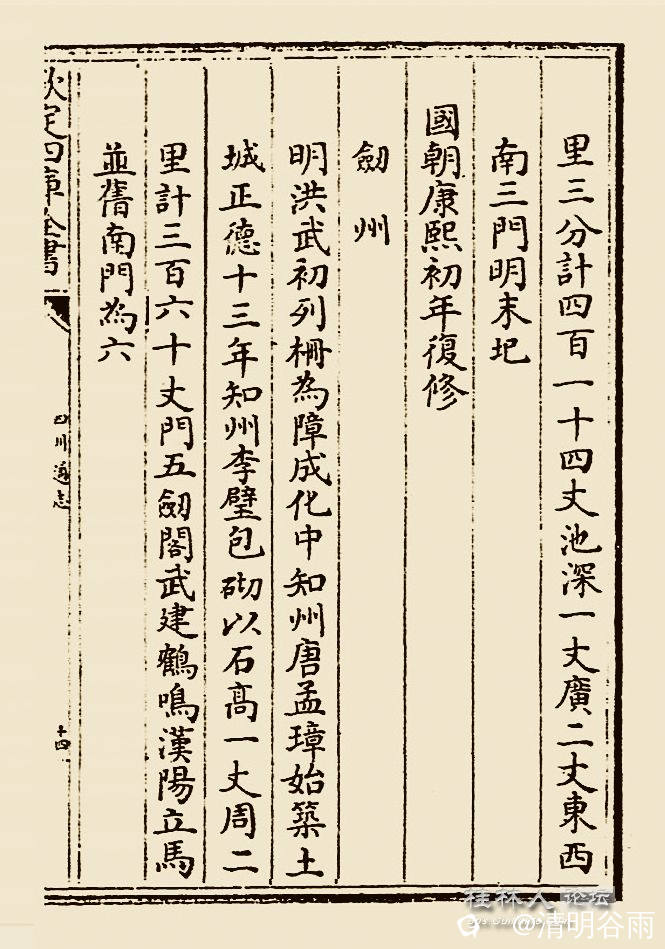 里三分計四百一十四丈池深一丈廣二丈東西
南三門明末圯
國朝康熙初年復修
劒州
明洪武初列柵為障成化中知州唐孟璋始築土
城正德十三年知州李璧包砌以石高一丈周二
里計三百六十丈門五劒閣武建鶴鳴漢陽立馬
並舊南門為六
欽定四庫全書
四川通志
十四
桂林人论坛
@清明谷雨